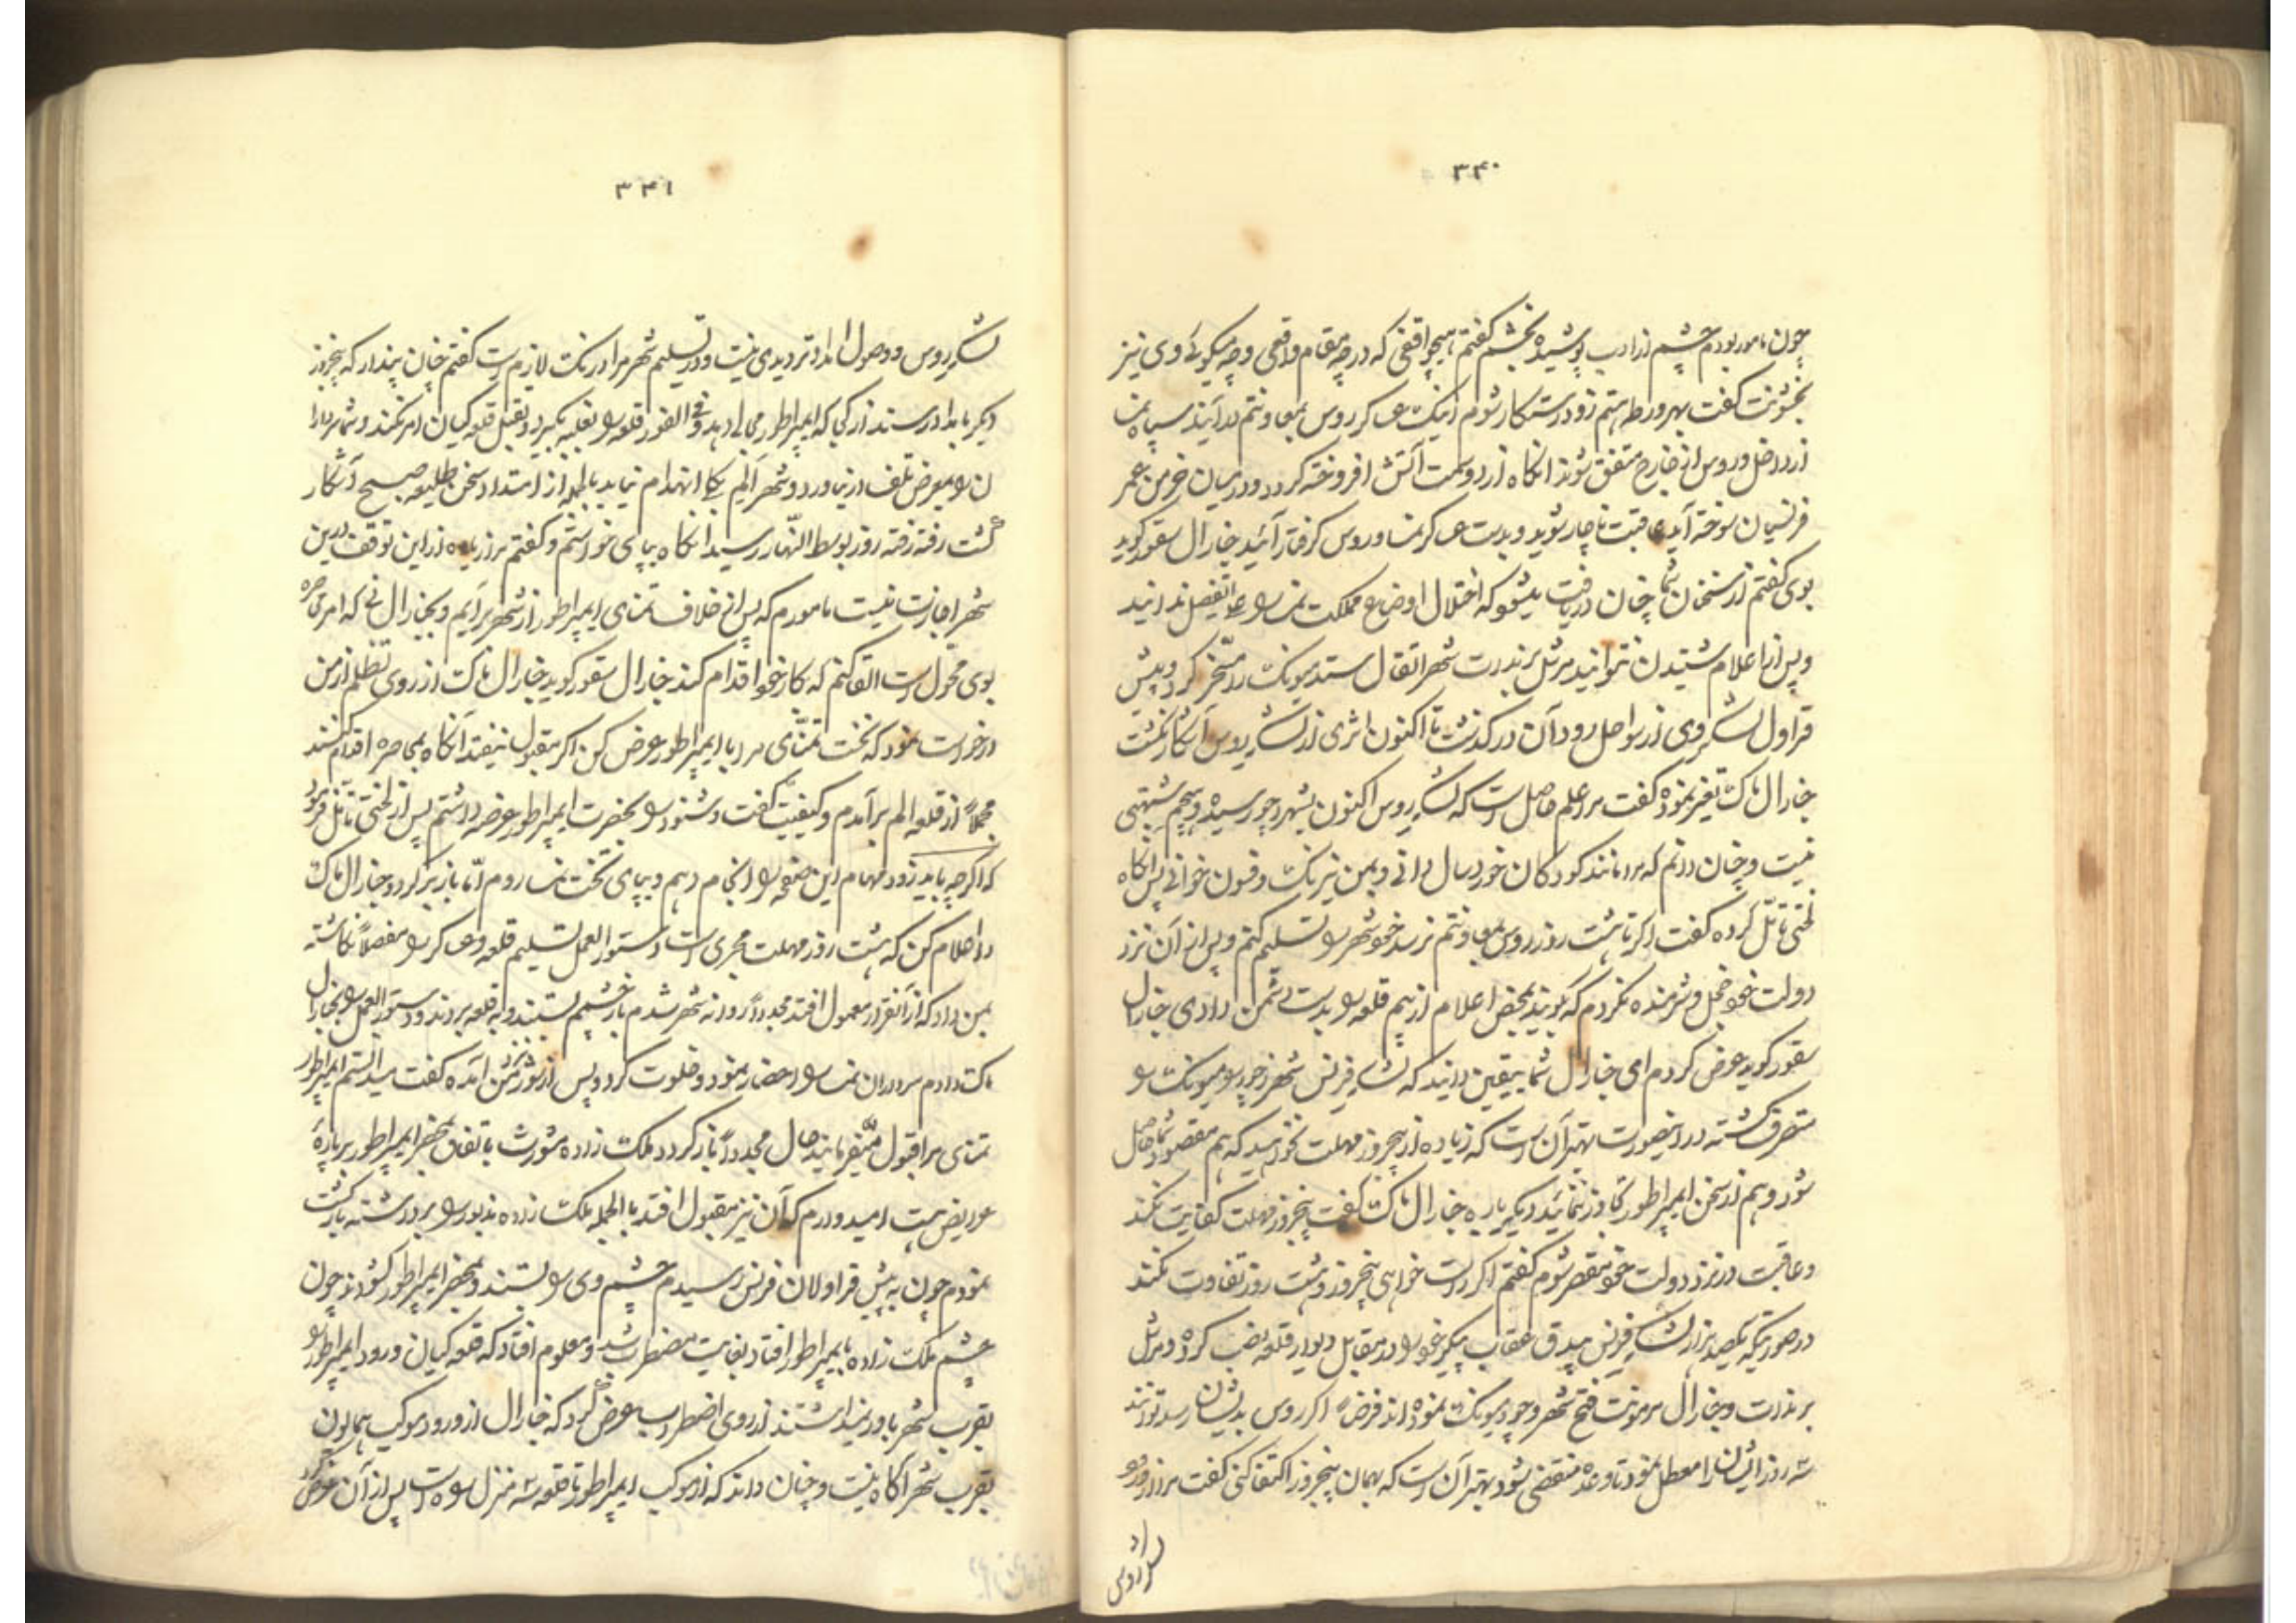 ۳۴۰
چون مامور بودم چشم از ادب پوشیده بخشم گفتم هیچ واقفی که در چه مقام واقعی و چه میگوئے وی نیز
بخشونت گفت بهر ورطه هستم زود رستگار شوم اینک عسکر روس بمعاونتم درآیند سپاه نمسا
از داخل و روس از خارج متفق شوند آنگاه از دو سمت آتش افروخته گردد و در میان خرمن عمر
فرنسیان سوخته آید عاقبت ناچار شوید و بدست عسکر نمسا و روس گرفتار آئید جنارال سقور گوید
بوی گفتم از سخنان شما چنان دریافت میشود که اختلال اوضاع مملکت نمسا را علی التفصیل ندانید
و پس از اعلام شنیدن نتوانید مرشل برندرت شهر اتقال ستد میونک را مسخر کرد و پیش
قراول لشکر وی از سواحل رود آن در گذشت تا اکنون اثری از لشکر روس آشکار نگشت
جنارال ماک تغیر نموده گفت مرا علم حاصل است که لشکر روس اکنون بشهر دچو رسیده و هیچم شبهتی
نیست و چنان دانم که مرا مانند کودکان خوردسال دانی و بمن نیرنک و فسون خوانی پس آنگاه
لختی تأمل کرده گفت اگر تا هشت روز روس بمعاونتم نرسد خود شهر را تسلیم کنم و پس از آن نزد
دولت خود خجل و شرمنده نگردم که گویند بمحض اعلام از بیم قلعه را بدست دشمن دادی جنارال
سقور گوید عرض کردم ای جنارال شما بیقین دانید که لشکر فرنس شهر دچو را و میونک را
متصرف گشته در اینصورت بهتر آن است که زیاده از پنجروز مهلت نخواهید که هم مقصود شما حاصل
شود و هم از سخن ایمپراطور تجاوز ننمائید دیگر باره جنارال ماک گفت پنجروز مهلت کفایت نکند
و عاقبت در نزد دولت خود مقصر شوم گفتم اگر راست خواهی پنجروز و هشت روز تفاوت نکند
در صورتیکه یکصد هزار لشکر فرنس بیدق عقاب پیکر خود را در مقابل دیوار قلعه نصب کرده و مرشل
برندرت و جنارال مرمونت فتح شهر دچو و میونک نموده اند فرضاً اگر روس بدیشان رسد توانند
سه روز ایشان را معطل نمود تا وعده منقضی شود بهتر آن است که بهمان پنجروز اکتفا کنی گفت مرا در ورود
لشکر روس
۳۴۱
لشکر روس و وصول امداد تردیدی نیست و در تسلیم شهر مرا درنک لازم است گفتم چنان پندار که پنجروز
دیگر بامداد رسند از کجا که ایمپراطور مجالی دهد و فی الفور قلعه را بغلبه نگیرد و بقتل قلعه گیان امر نکند و شما سرداران
را بمعرض تلف در نیاورد و شهر الم یکجا انهدام نیابد بالجمله از امتداد سخن طلیعه صبح آشکار
گشت رفته رفته روز بوسط النهار رسید آنگاه بپای خواستم و گفتم مرا زیاده از این توقف در این
شهر اجازت نیست مامورم که پس از خلاف تمنای ایمپراطور از شهر برآیم و بجنارال نی که امر محاصره
بوی محول است القا کنم که بکار خود اقدام کند جنارال سقور گوید جنارال ماک از روی تظلم از من
درخواست نمود که نخست تمنای مرا با ایمپراطور عرض کن اگر مقبول نیفتد آنگاه بمحاصره اقدام کنند
مجملاً از قلعه الم برآمدم و کیفیت گفت و شنود را بحضرت ایمپراطور عرضه داشتم پس از لختی تأمل فرمود
که اگر چه باید زود مهام این صفحه را انجام دهم و بپای تخت نمسا روم اما باز برگرد و جنارال ماک
را اعلام کن که هشت روز مهلت مجری است و دستور العمل تسلیم قلعه و عسکر را مفصلاً نگاشته
بمن داد که از آنقرار معمول افتد مجدداً روانه شهر شدم باز چشمم بستند و به قلعه بردند و دستور العمل را بجنارال
ماک دادم سرداران نمسا را احضار نمود و خلوت کرد و پس از شور نزد من آمده گفت میدانستم ایمپراطور
تمنای مرا قبول میفرماید حال مجدداً باز گرد ملک زاده موریش باتفاق بمحضر ایمپراطور بر پارهٔ
عرایض هست امیدوارم که آن نیز مقبول افتد بالجمله ملک زاده مذبور را برداشته بازگشت
نمودم چون به پیش قراولان فرنس رسیدم چشم وی را بستند و بمحضر ایمپراطور گشودند چون
چشم ملک زاده بایمپراطور افتاد بغایت مضطرب شد و معلوم افتاد که قلعه گیان ورود ایمپراطور را
بقرب شهر باور نمیداشتند از روی اضطراب عرض کرد که جنارال از ورود موکب همایون
بقرب شهر آگاه نیست و چنان داند که از موکب ایمپراطور تا قلعه سه منزل راه است پس از آن عرض کرد